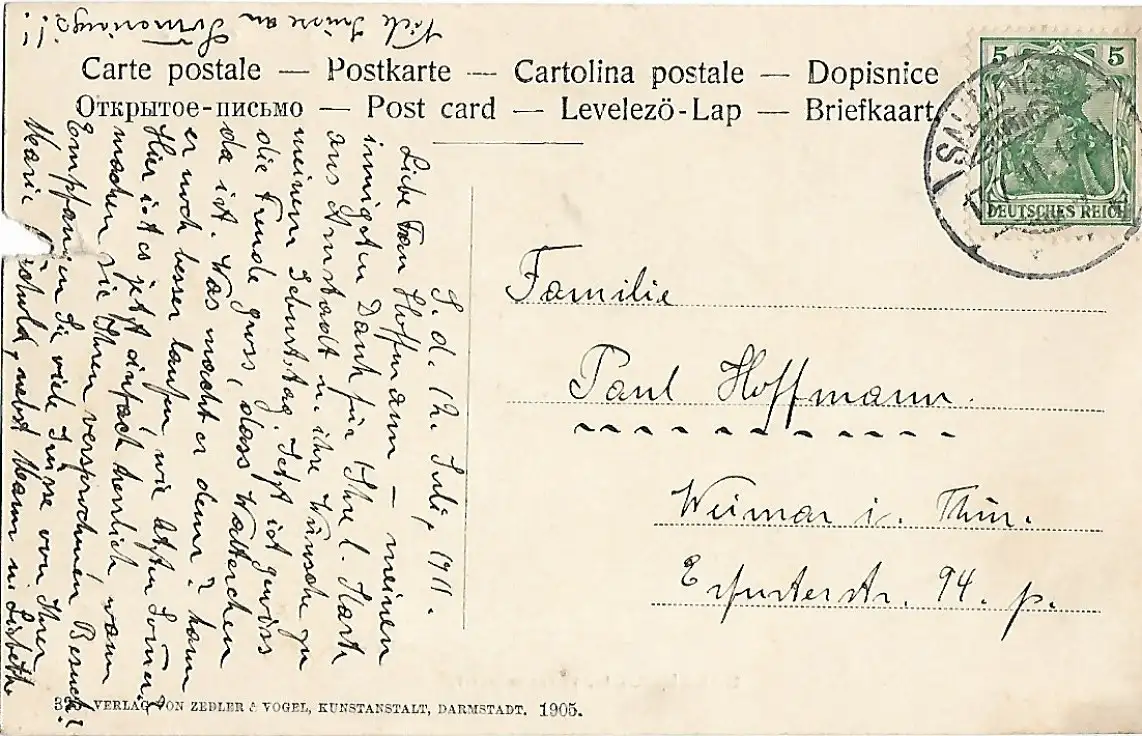 Carte postale — Postkarte — Cartolina postale — Dopisnice
Открытое-письмо — Post card — Levelező-Lap — Briefkaart
5 5
DEUTSCHES REICH
Familie
Paul Hoffmann.
Weimar i. Thür.
Erfurterstr. 94. p.
S. d. 12. Juli, 1911.
Liebe Frau Hoffmann — meinen
innigsten Dank für Ihre l. Karte
aus Arnstadt u. ihre Wünsche zu
meinem Geburtstag. Jetzt ist gewiss
die Freude gross, dass Walterchen
da ist. Was macht er denn? kann
er noch besser laufen, wie letzten Sommer?
Hier ist es jetzt einfach herrlich, wann
machen sie Ihren versprochnen Besuch?
Empfangen Sie viele Grüsse von Ihrer
Marie nebst Mann u. Lisbeth.
Viele Grüsse an !!
VERLAG VON ZEDLER & VOGEL, KUNSTANSTALT, DARMSTADT. 1905.